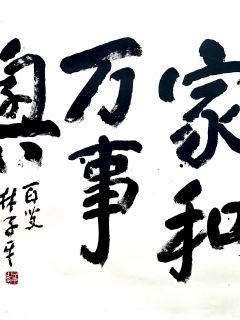 家和
万事
兴
百叟
林子平